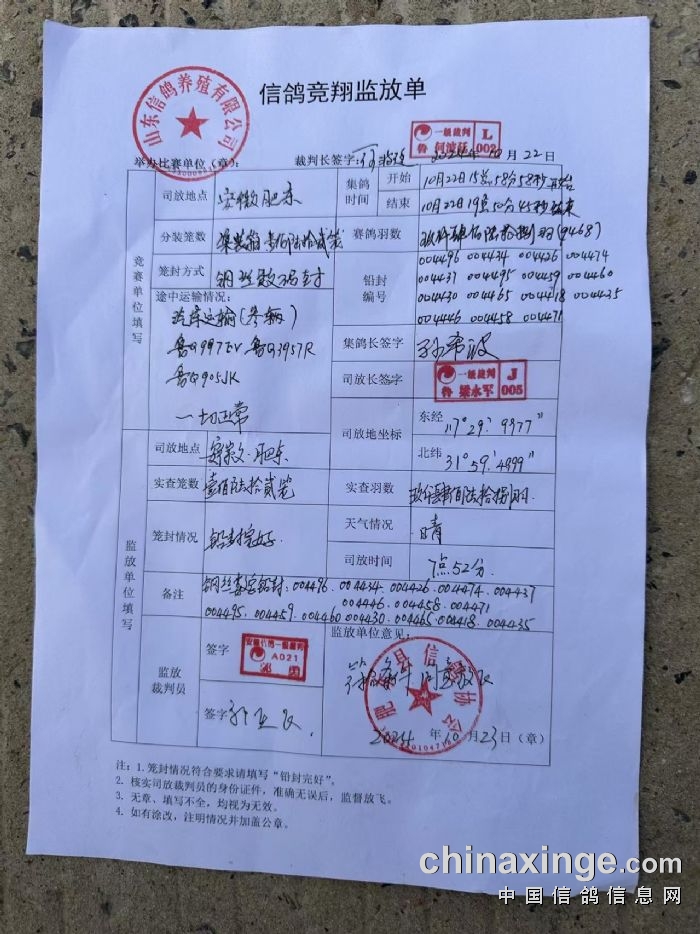 信鸽竞翔监放单
山东信鸽养殖有限公司
一级裁判 L
鲁 002
举办比赛单位(章): 裁判长签字: 2024年10月22日
竞赛单位填写
司放地点 安徽肥东 集鸽时间 开始 10月22日15点58分58秒开始
结束 10月22日19点50分45秒结束
分装笼数 集装箱壹佰陆拾贰笼 赛鸽羽数 玖仟肆佰陆拾捌羽(9468)
笼封方式 钢丝数码封 铅封编号 004496 004434 004426 004474
004437 004495 004459 004460
004430 004465 004418 004435
004446 004458 004471
途中运输情况:
汽车运输(叁辆)
鲁Q997EV 鲁Q3957R
鲁Q905JK
一切正常
集鸽长签字 孙希波
司放长签字 一级裁判 J
鲁 梁永军 005
司放地坐标 东经 117°29′9977″
北纬 31°59′4899″
监放单位填写
司放地点 安徽·肥东
实查笼数 壹佰陆拾贰笼 实查羽数 玖仟肆佰陆拾捌羽
笼封情况 铅封完好 天气情况 晴
司放时间 7点52分
备注 钢丝 铅封:004496.004434.004426.004474.004437
004446.004458.004471
004495.004459.004460 004430.004465.004418.004435
监放裁判员 签字 A021
签字
监放单位意见:
肥 县信鸽协会
2024年10月23日(章)
注:1. 笼封情况符合要求请填写“铅封完好”。
2. 核实司放裁判员的身份证件,准确无误后,监督放飞。
3. 无章、填写不全,均视为无效。
4. 如有涂改,注明情况并加盖公章。
chinaxinge.com
中国信鸽信息网